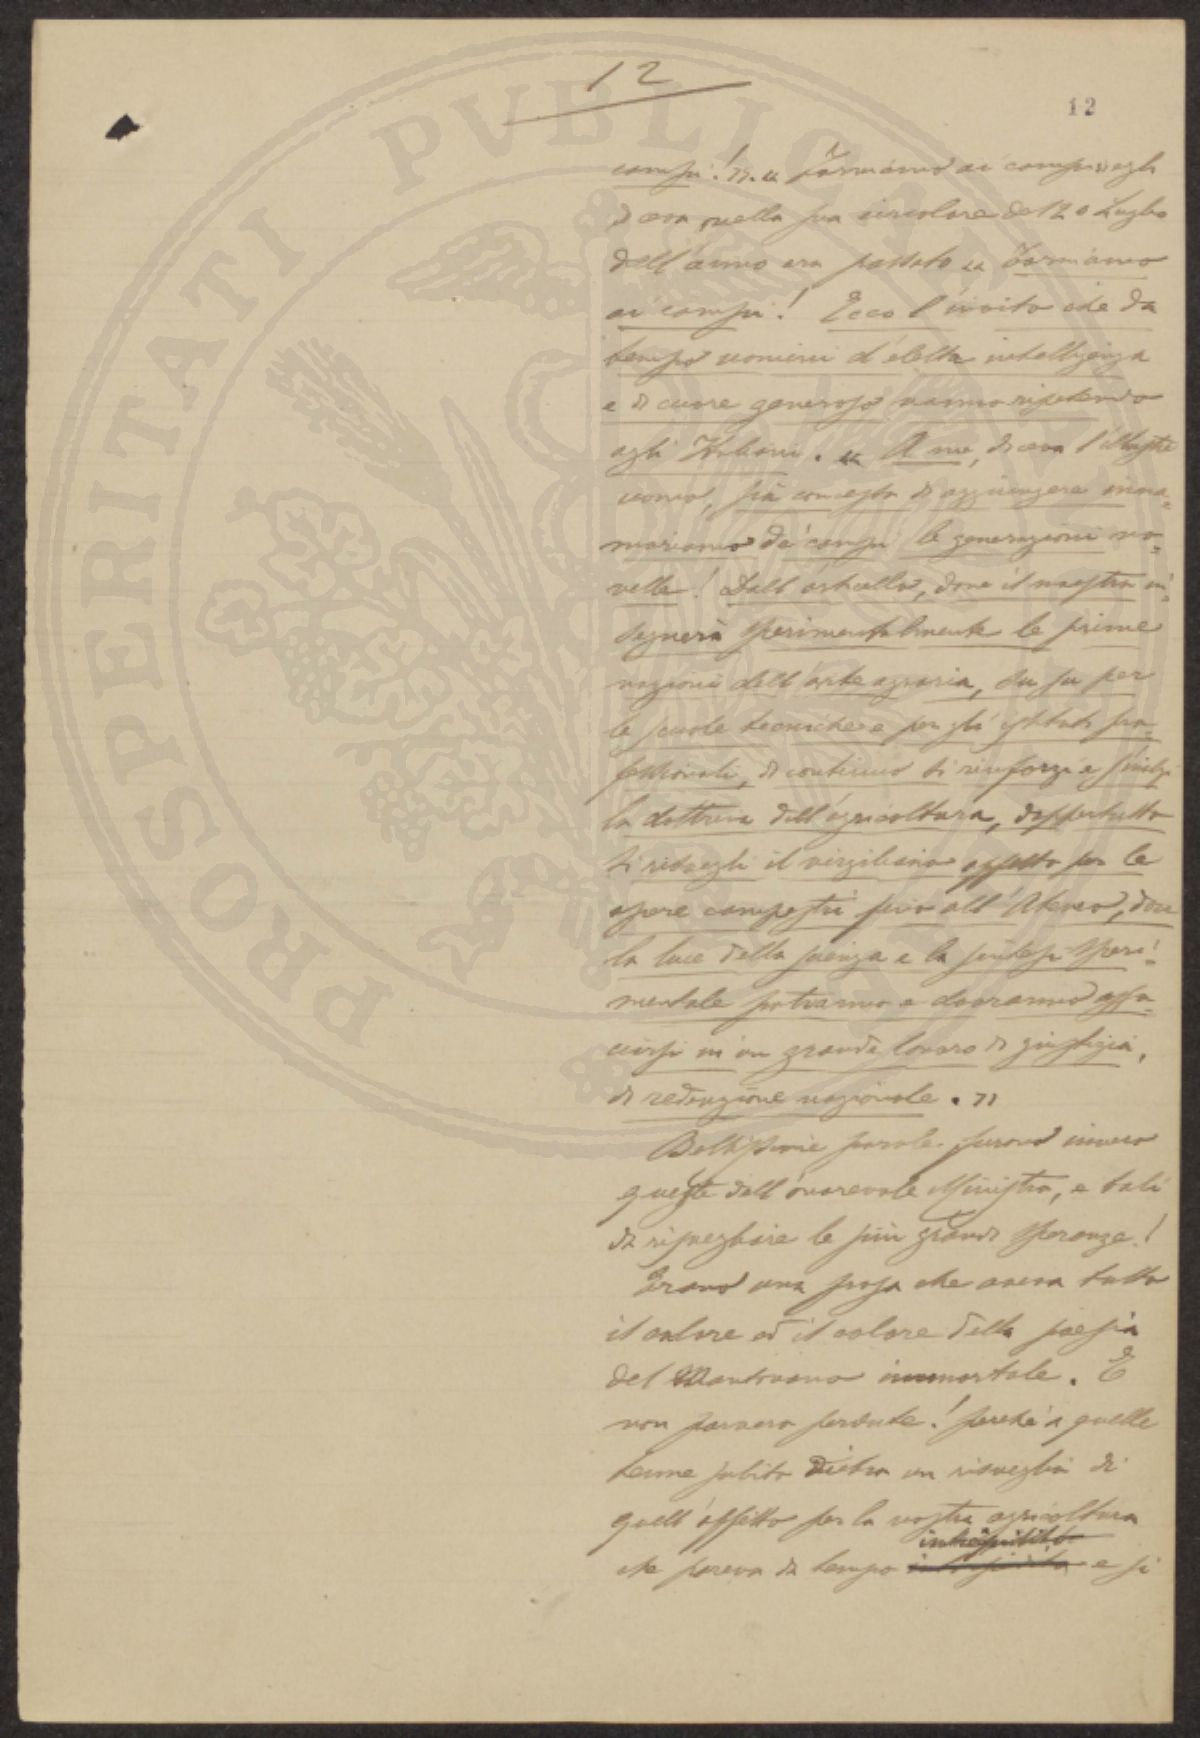 12
12
campi! ». « Torniamo ai campi » egli
diceva nella sua circolare del 20 Luglio
dell'anno ora passato « Torniamo
ai campi! Ecco l'invito che da
tempo uomini d'eletta intelligenza
e di cuore generoso vanno ripetendo
agli Italiani. « A me, diceva l'illustre
uomo, sia concesso di aggiungere inna-
moriamo de' campi le generazioni no-
velle! Dall'orticello, dove il maestro in-
segnerà sperimentalmente le prime
nozioni dell'arte agraria, su su per
le scuole tecniche e per gli istituti pro-
fessionali, di continuo si rinforzi e
la dottrina dell'agricoltura, dappertutto
si risvegli il virgiliano affetto per le
opere campestri fino all'Ateneo, dove
la luce della scienza e la sintesi speri-
mentale potranno e dovranno asso-
ciarsi in un grande lavoro di giustizia,
di redenzione nazionale. »
Bellissime parole furono invero
queste dell'onorevole Ministro, e tali
da risvegliare le più grandi speranze!
Erano una prosa che aveva tutto
il calore ed il colore della poesia
del Mantovano immortale. E
non furono perdute! perchè a quelle
tenne subito dietro un risveglio di
quell'affetto per la nostra agricoltura
intiepidito
che pareva da tempo e si
PROSPERITATI PVBLICAE